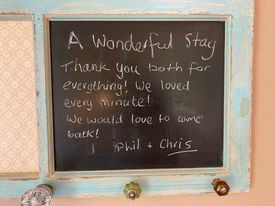 A Wonderful Stay
Thank you both for
everything! We loved
every minute!
We would love to come
back!
Phil + Chris